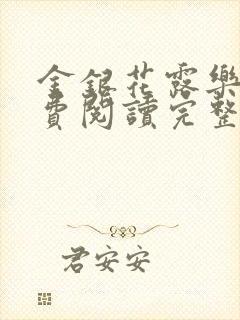 金銀花露樂
費閱讀完整
君安安